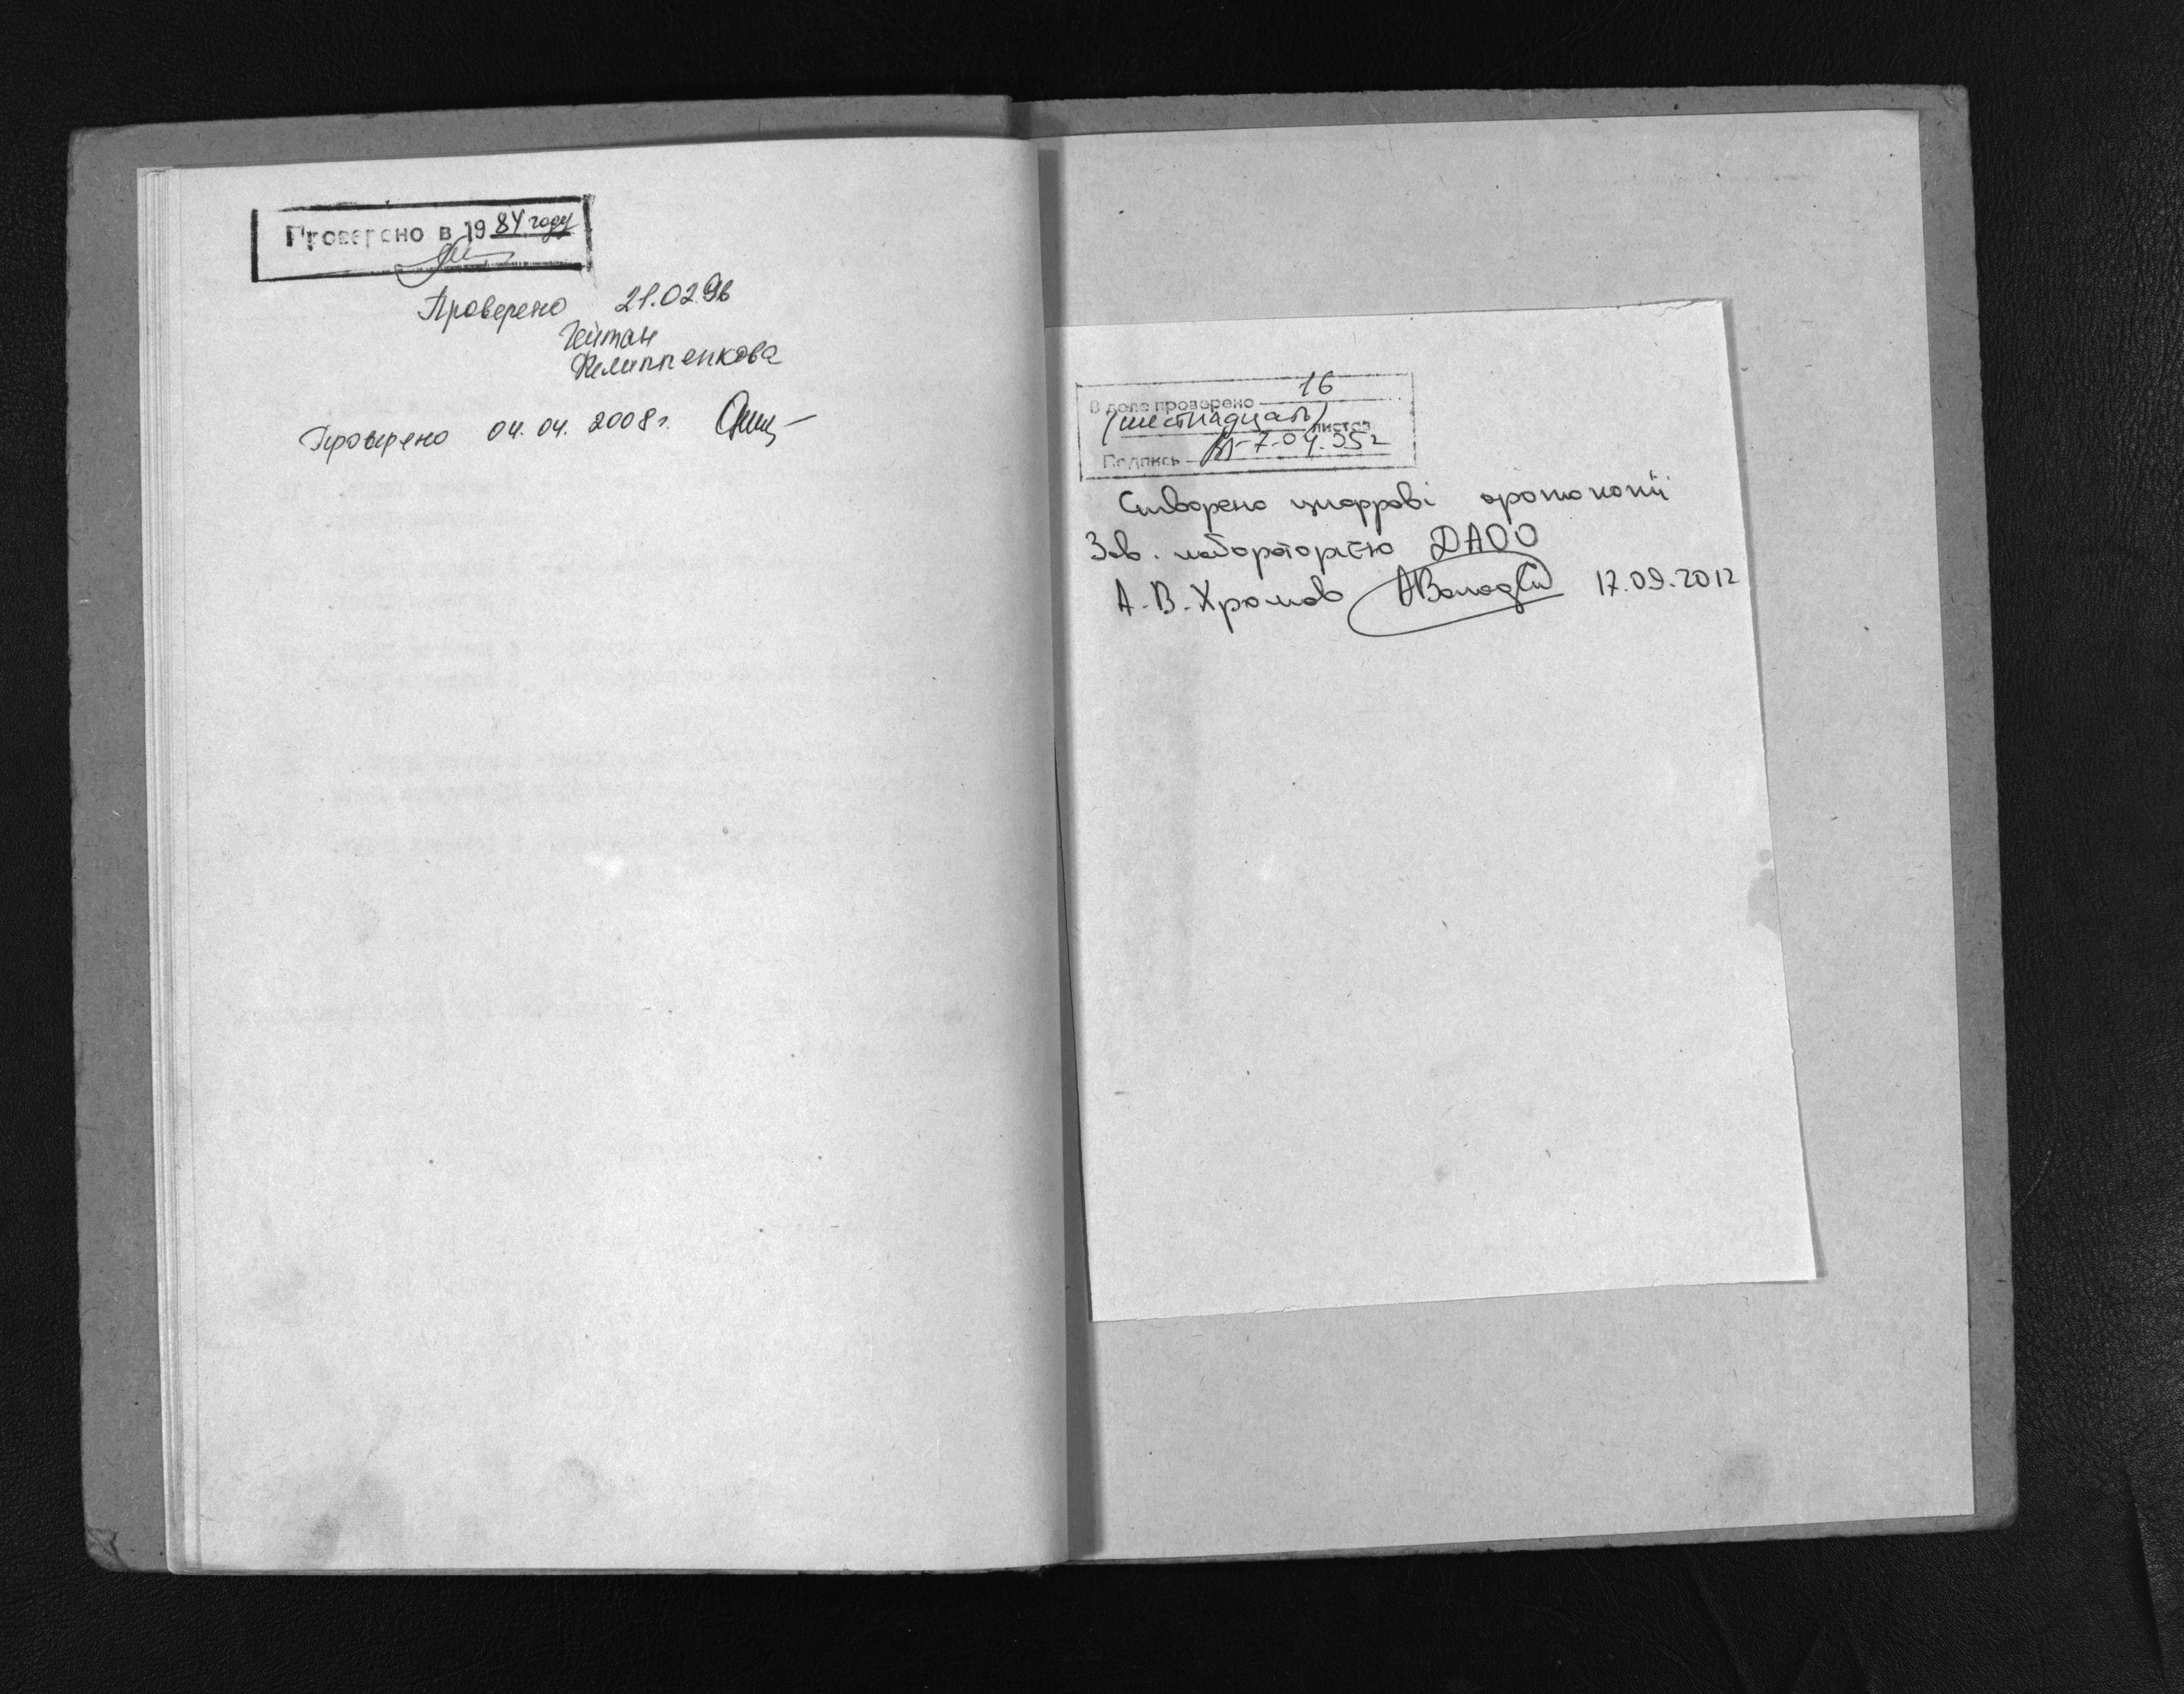 Проверено в 1984 году
Проверено 21.02.96
Гейман
Филиппенкова
Проверено 04.04.2008 г.
В деле проверено 16
(шестнадцать) листов
Подпись 7-04.95 г
Створено цифрові фотокопії
Зав. лабораторією ДАОО
А.В. Хромов 17.09.2012